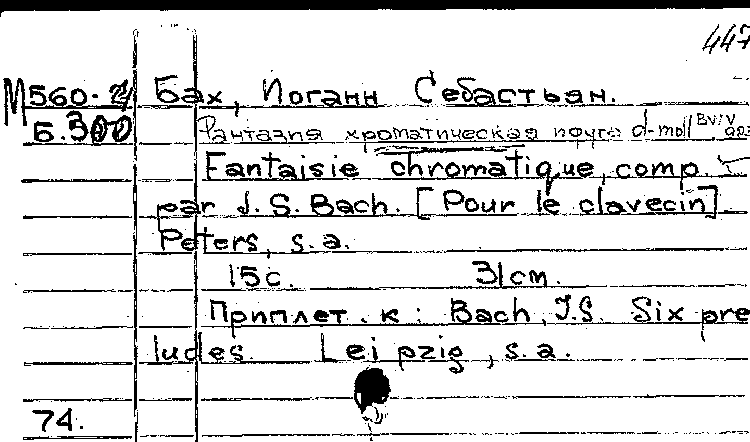 447
М560.4 Бах, Иоганн Себастьян.
Б.300 Фантазия хроматическая и фуга d-moll BWV 903
Fantaisie chromatique, comp.
par J. S. Bach. [Pour le clavecin]
Peters, s.a.
15с. 31см.
Приплет. к: Bach, J.S. Six pre
ludes. Leipzig, s.a.
74.